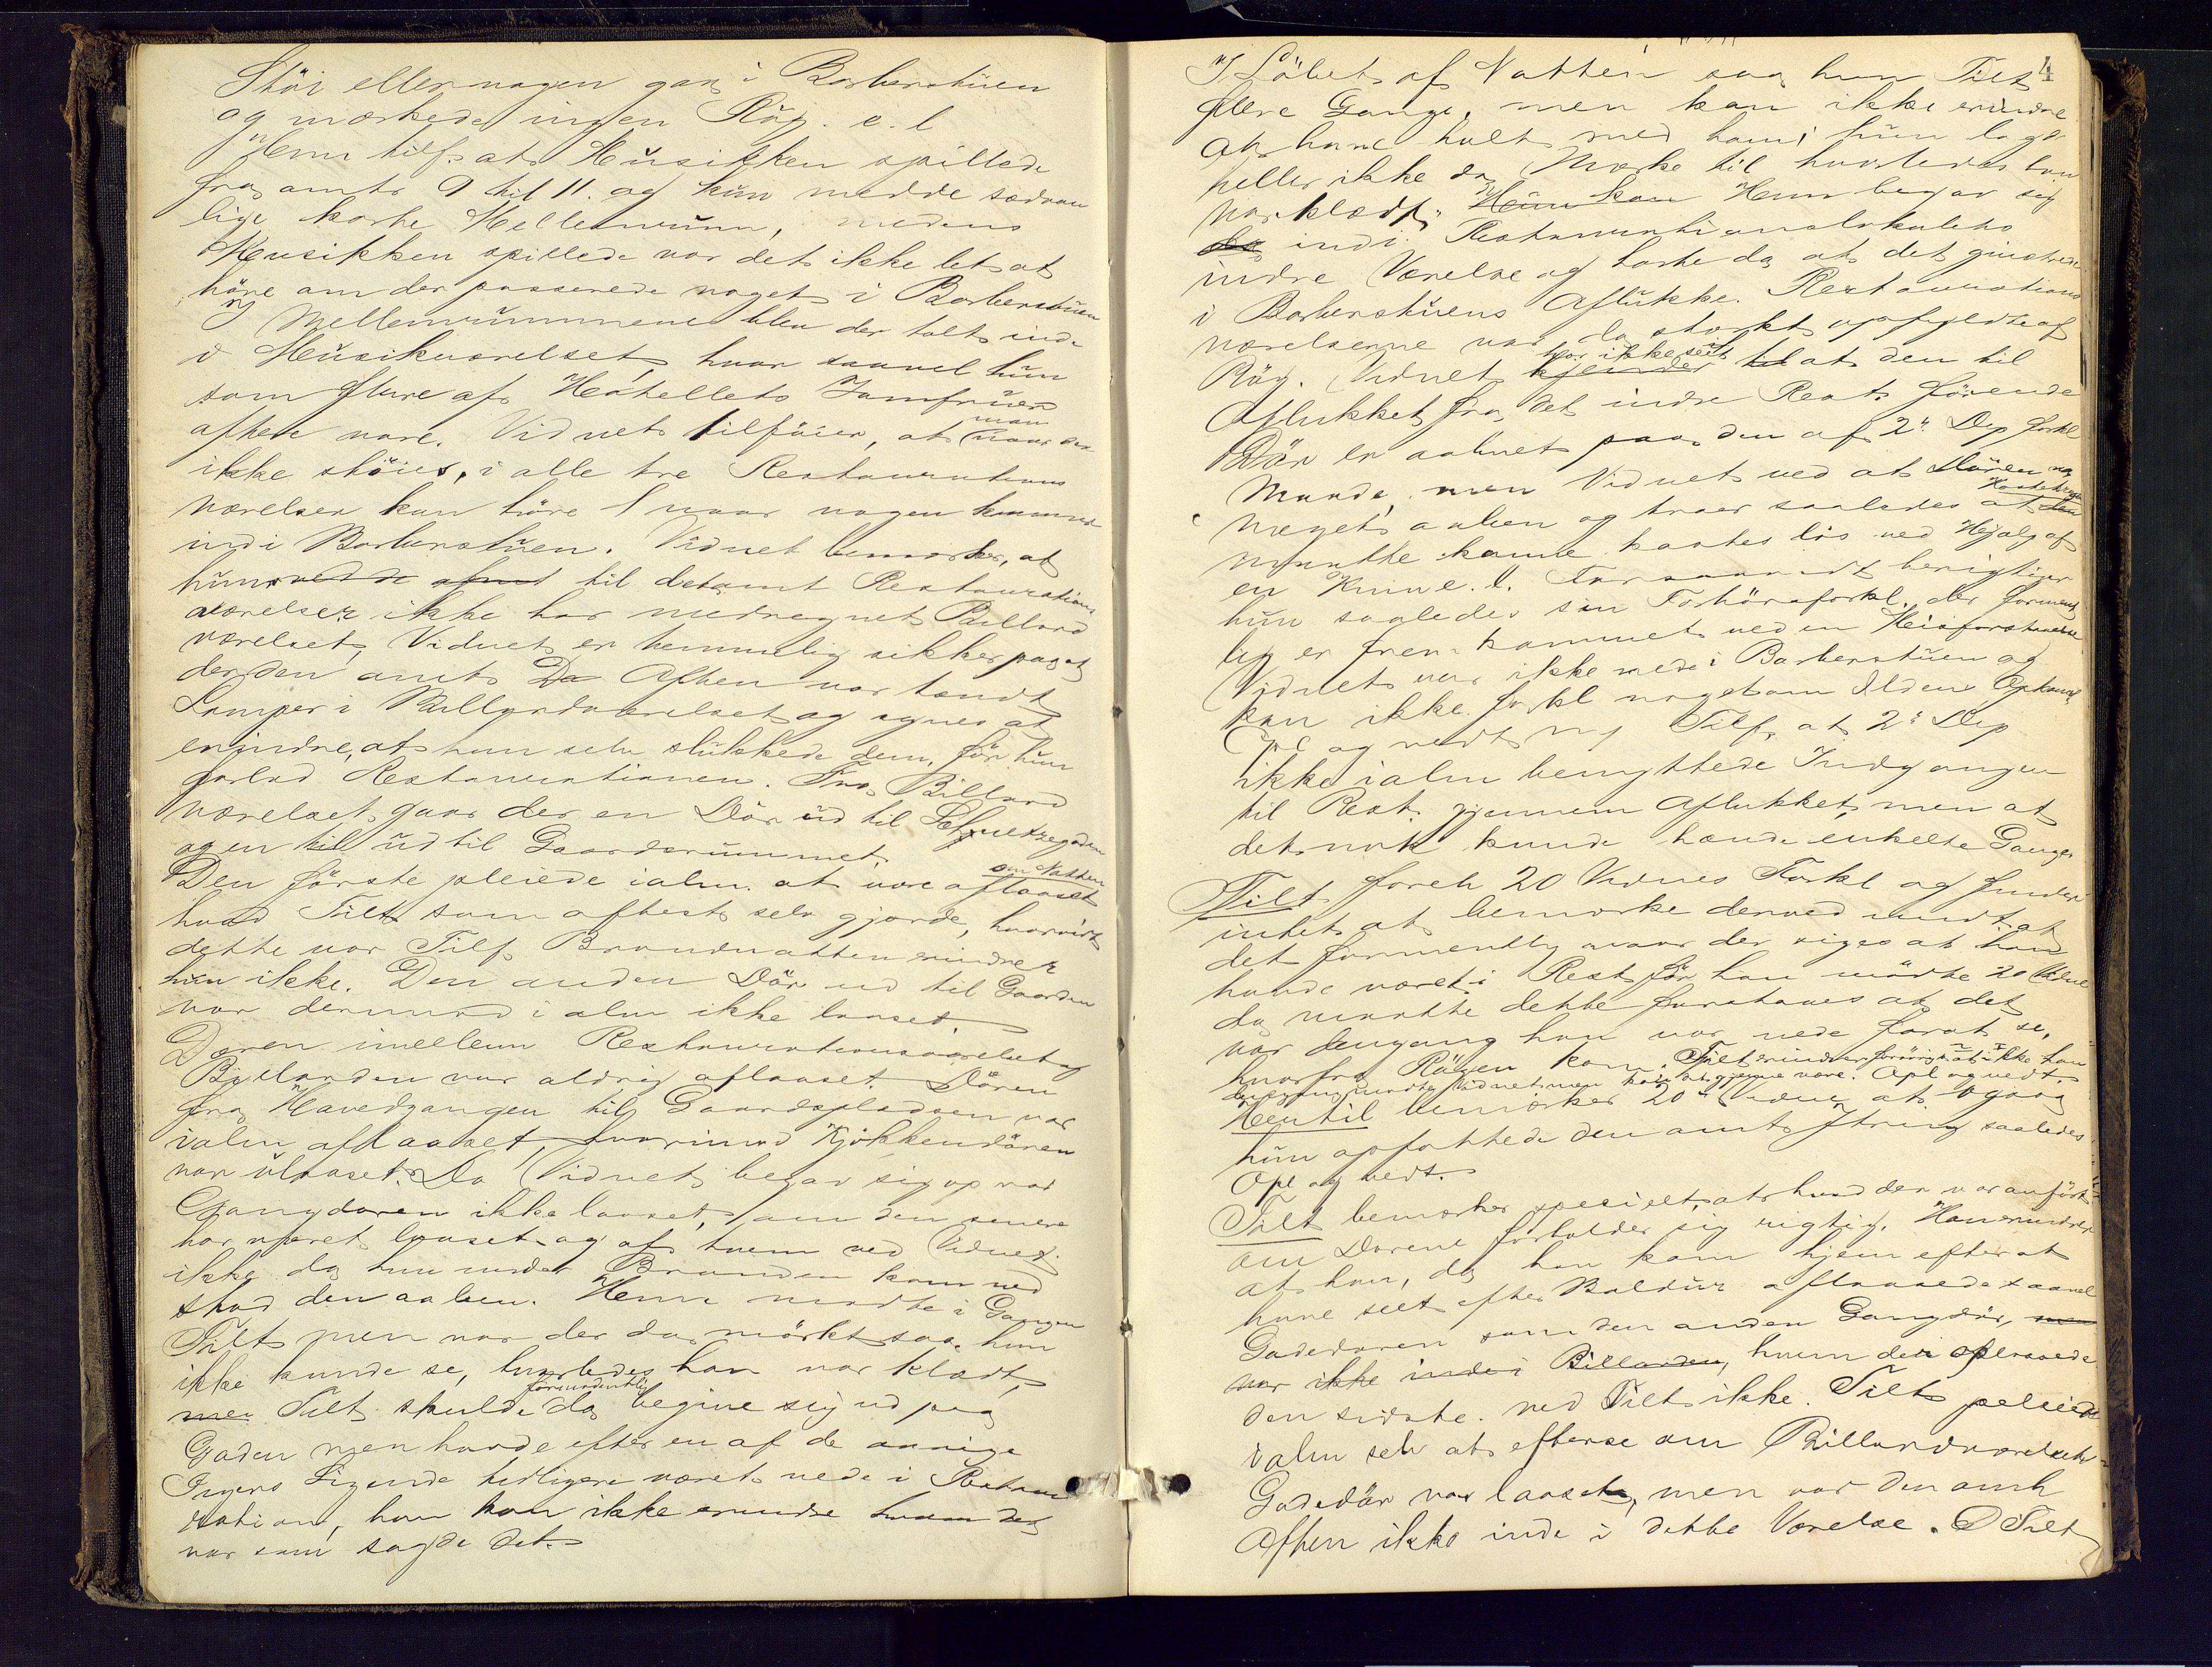 Stöi eller nogen gaa i Barberstuen
og mærkede ingen Røg. e. l
Hun tilf. at Musikken spillede
fra omtr 9 til 11. og kun med de sædvan
lige korte Mellemrum, medens
Musikken spillede var det ikke let at
höre om der passerede noget i Barberstuen
I Mellemrummene blev der talt inde
i Musikværelset, hvor saavel hun
som flere af Hotellets Jomfruer
oftere vare. Vidnet tilföier, at man naar der
ikke stöies, i alle tre Restaurations
værelser kan höre naar nogen kommer
ind i Barberstuen. Vidnet bemærker, at
hun til det omt Restaurations
værelser ikke har medregnet Billard
værelset, Vidnet er temmelig sikker paa at
der den omt Aften var tændt
Lamper i Billardværelset og synes at
erindre, at hun selv slukkede dem, för hun
forlod Restaurationen. Fra Billard
værelset gaar der en Dör ud til
og en til ud til Gaardsrummet.
Den förste pleiede ialm. at være aflaaset om Natten
hvad Tilt. som oftest selv gjorde, hvorvidt
dette var Tilf. Brandnatten erindrer
hun ikke. Den anden Dör ud til Gaarden
var derimod i alm ikke laaset.
Dören imellem Restaurationsværelset og
Billarden var aldrig aflaaset. Dören
fra Hovedgangen til Gaardspladsen var
ialm aflaaset, hvorimod Kjökkendören
var ulaaset. Da Vidnet begav sig op var
Gangdören ikke laaset, om den senere
har været laaset og af hvem ved Vidnet
ikke da hun under Branden kom ned
stod den aaben. Hun mödte i Gangen
Tilt. men var der da mörkt saa hun
ikke kunde se, hvorledes han var klædt,
men Tilt. skulde da formodentlig begive sig ud paa
Gaden men havde efter en af de
Pigers Sigende tidligere været nede i Restau
ration, hun kan ikke erindre hvem det
var som sagde det.
4
I Löbet af Natten saa hun Tilt.
flere Gange, men kan ikke erindre
at have talt med ham; hun lagde
heller ikke da Mærke til hvorledes han
var klædt. Hun kan Hun begav sig
da ind i Restaurationslokalets
indre Værelse og hörte da at det gnistrede
i Barberstuens Aflukke. Restaurations
værelserne var da stærkt opfyldte af
Rög. Vidnet har ikke seet kjender til at den til
Aflukket fra det indre Rest. förende
Dör er aabnet paa den af 2. Dep forkl
Maade, men Vidnet ved at Dören
meget aaben og troer saaledes at
maatte kunne kastes lös ved Hjælp af
en Kniv e. l. Forsaavidt berigtiger
hun saaledes sin Forhörsforkl. der forment
lig er fremkommet ved en Misforstaaelse
Vidnet var ikke nede i Barberstuen og
kan ikke forkl noget om Ildens Opkomst
Opl og vedt. Tilf. at 2. Dep
ikke ialm benyttede Indgangen
til Rest. gjennem Aflukket, men at
det nok kunde hænde enkelte Gange
Tilt. foreh 20 Vidnes Forkl og finder
intet at bemærke derved undt. at
det formentlig naar der siges at han
havde været i Rest. för han mödte 20 Vidne
da maatte dette forstaaes at det
var dengang han var nede for at se,
hvorfra Rögen kom. Tilt erindrer forövrigt ikke at han
dengang mödte Vidnet men kan det gjerne være. Opl og vedt.
Hertil bemærker 20 Vidne at ogsaa
hun opfattede den omt Ytring saaledes
Opl og vedt.
Tilt bemærker specielt, at hvad der var anfört
om Dörene forholder sig rigtig. Han erindrer
at han, da han kom hjem efter at
have seet efter Baldur aflaasede saavel
Gadedören som den anden Gangdör, men
var ikke inde i Billarden, hvem der
den sidste ved Tilt ikke. Tilt pleiede
ialm selv at efterse om Billardværelsets
Gadedör var laaset, men var den omh
Aften ikke inde i dette Værelse. Tilt